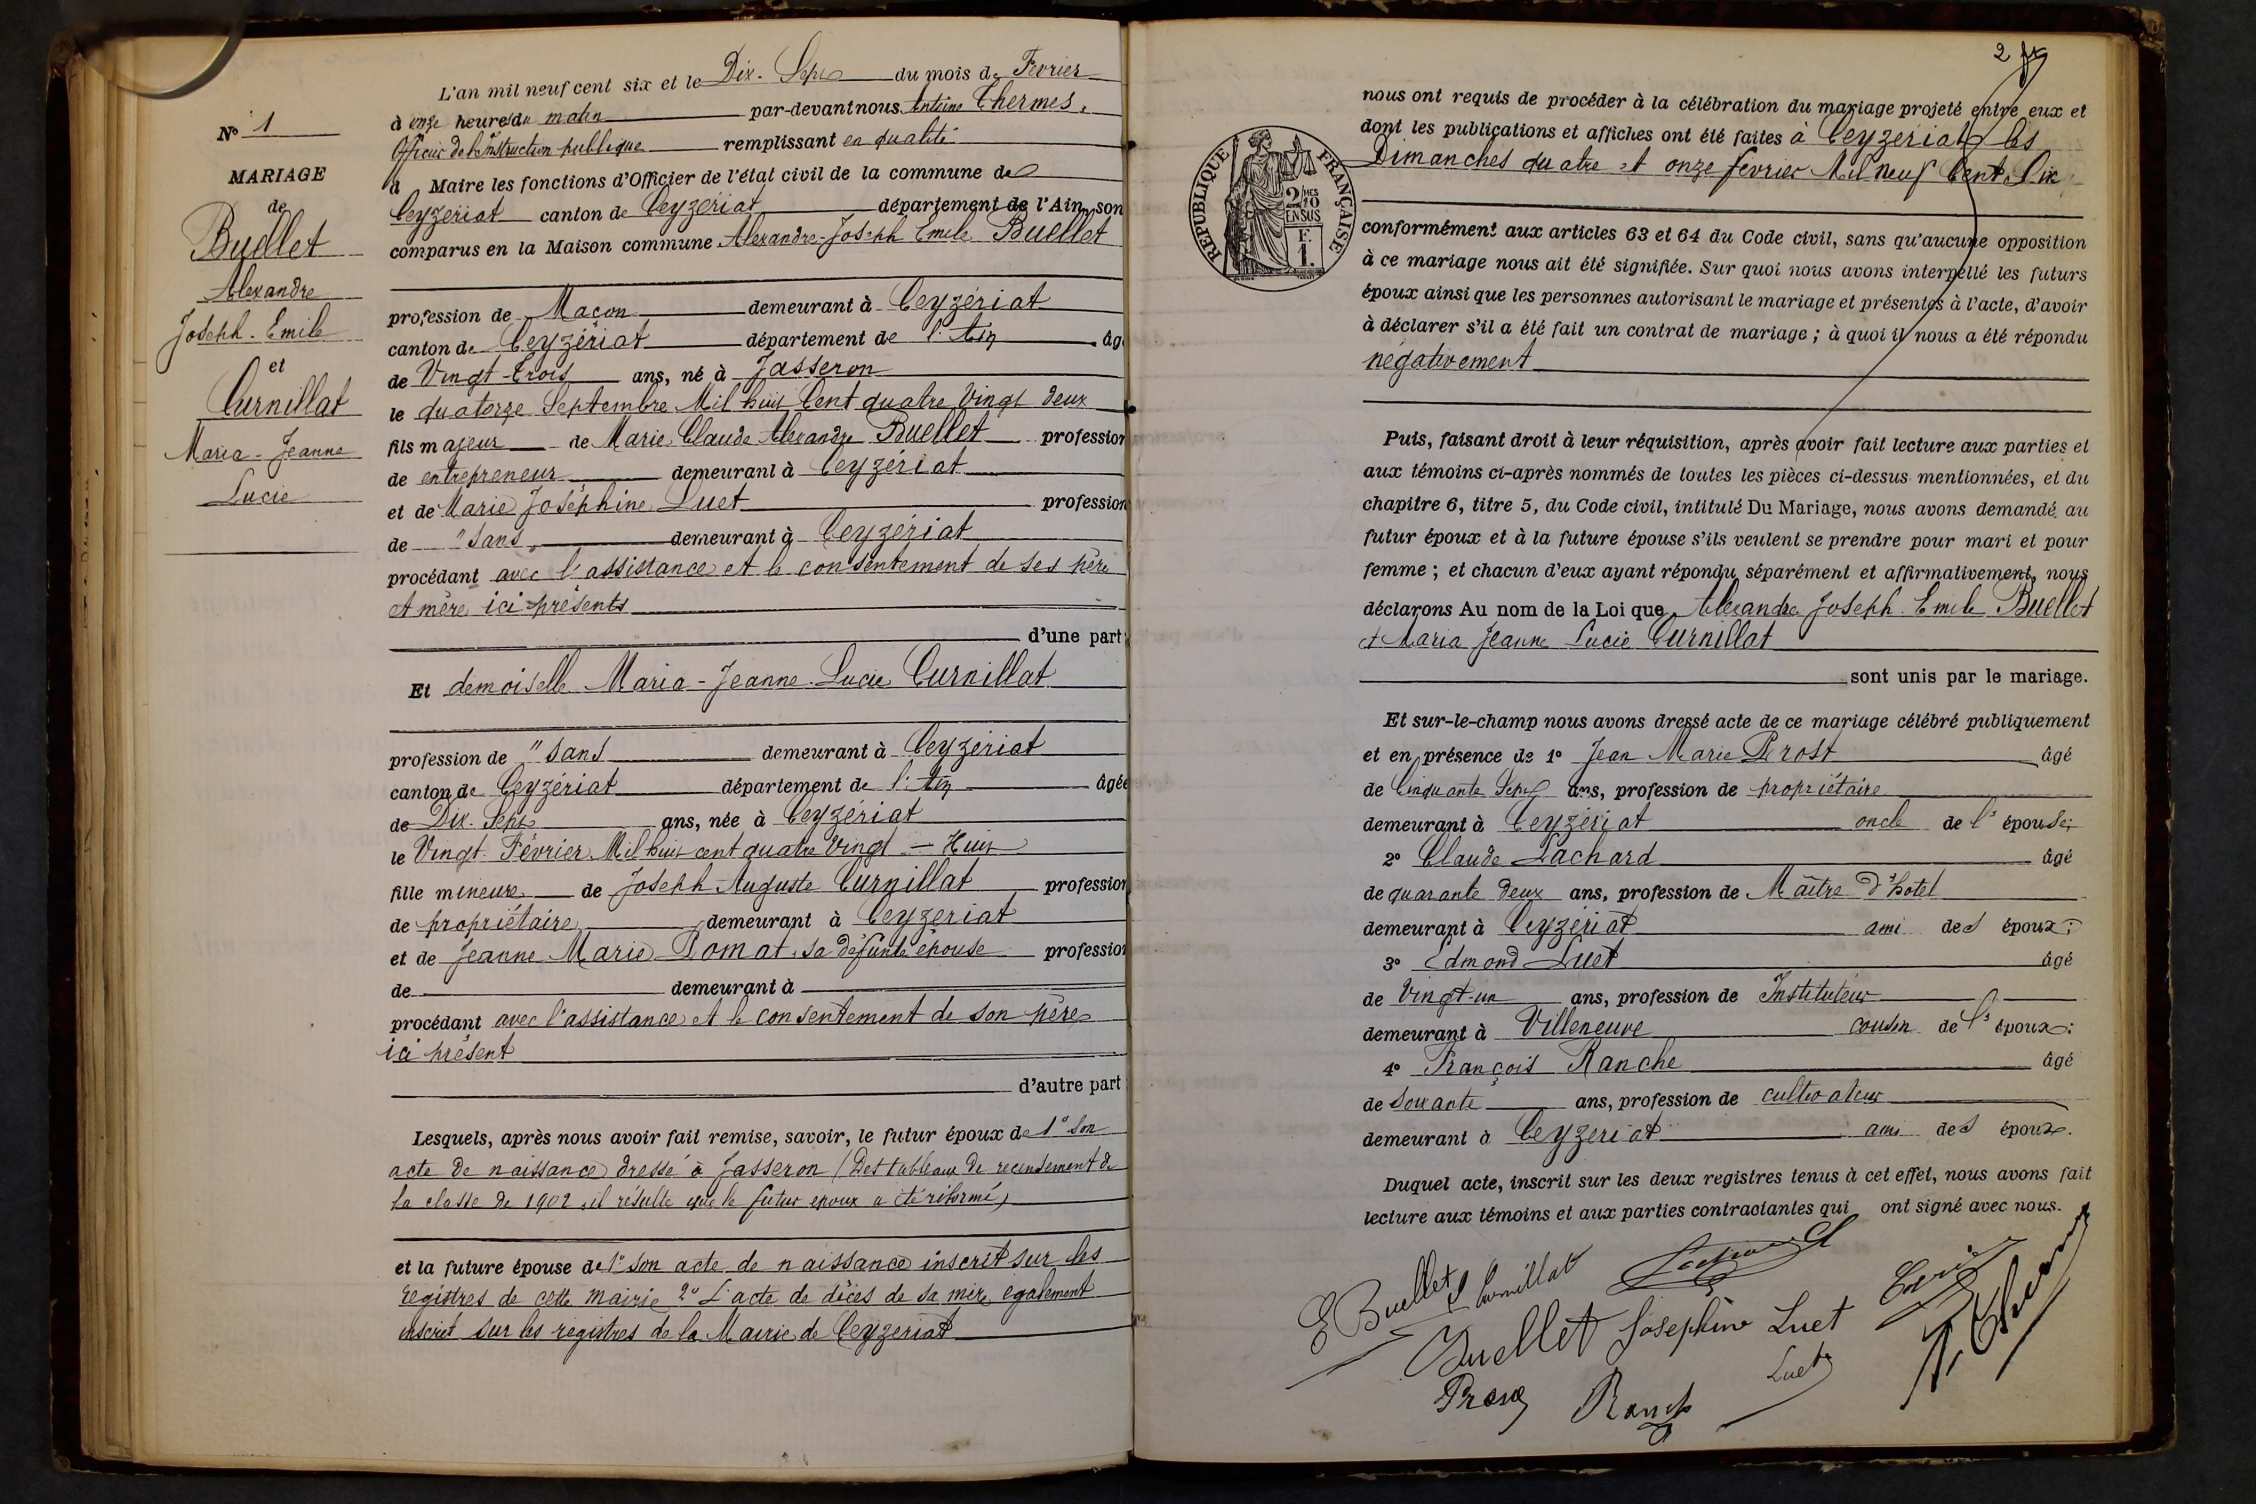 N° 1
MARIAGE
de
Buellet
Alexandre
Joseph-Emile
et
Curnillat
Maria-Jeanne
Lucie
L'an mil neuf cent six et le Dix-Sept du mois de Fevrier
à onze heures du matin par-devant nous Antoine Chermes,
Officier de l'Instruction publique remplissant en qualité
de Maire les fonctions d'Officier de l'état civil de la commune de
Ceyzériat canton de Ceyzériat département de l'Ain, son
comparus en la Maison commune Alexandre-Joseph Emile Buellet
profession de Maçon demeurant à Ceyzériat
canton de Ceyzériat département de l'Ain âg
de Vingt-trois ans, né à Jasseron
le quatorze Septembre Mil huit Cent quatre Vingt deux
fils majeur de Marie Claude Alexandre Buellet profession
de entrepreneur demeurant à Ceyzériat
et de Marie Joséphine Luet profession
de "sans" demeurant à Ceyzériat
procédant avec l'assistance et le consentement de ses père
et mère ici présents
d'une part
Et demoiselle Maria-Jeanne-Lucie Curnillat
profession de "sans demeurant à Ceyzériat
canton de Ceyzériat département de l'Ain âgée
de Dix-Sept ans, née à Ceyzériat
le Vingt Février Mil huit cent quatre Vingt-Huit
fille mineure de Joseph Auguste Curnillat profession
de propriétaire demeurant à Ceyzeriat
et de Jeanne Marie Pomat, sa défunte épouse profession
de demeurant à
procédant avec l'assistance et le consentement de son père
ici présent
d'autre part
Lesquels, après nous avoir fait remise, savoir, le futur époux de 1° son
acte de naissance dressé à Jasseron (Des tableaux de recensement de
la classe de 1902, il résulte que le futur epoux a été réformé)
et la future épouse de 1° son acte de naissance inscrit sur les
régistres de cette mairie 2° L'acte de décès de sa mère également
inscrit sur les registres de la Mairie de Ceyzeriat
2
REPUBLIQUE FRANÇAISE
2/10 EN SUS
F. 1.
nous ont requis de procéder à la célébration du mariage projeté entre eux et
dont les publications et affiches ont été faites à Ceyzériat les
Dimanches quatre et onze fevrier Mil neuf Cent Six
conformément aux articles 63 et 64 du Code civil, sans qu'aucune opposition
à ce mariage nous ait été signifiée. Sur quoi nous avons interpellé les futurs
époux ainsi que les personnes autorisant le mariage et présentes à l'acte, d'avoir
à déclarer s'il a été fait un contrat de mariage ; à quoi il nous a été répondu
négativement
Puis, faisant droit à leur réquisition, après avoir fait lecture aux parties et
aux témoins ci-après nommés de toutes les pièces ci-dessus mentionnées, et du
chapitre 6, titre 5, du Code civil, intitulé Du Mariage, nous avons demandé au
futur époux et à la future épouse s'ils veulent se prendre pour mari et pour
femme ; et chacun d'eux ayant répondu séparément et affirmativement, nous
déclarons Au nom de la Loi que Alexandre Joseph Emile Buellet
et Maria Jeanne Lucie Curnillat
sont unis par le mariage.
Et sur-le-champ nous avons dressé acte de ce mariage célébré publiquement
et en présence de 1° Jean Marie Prost âgé
de Cinquante Sept ans, profession de propriétaire
demeurant à Ceyzériat oncle de l'épouse;
2° Claude Lachard âgé
de quarante deux ans, profession de Maître d'hotel
demeurant à Ceyzériat ami des époux;
3° Edmond Luet âgé
de Vingt-un ans, profession de Instituteur
demeurant à Villeneuve cousin de l'époux;
4° François Ranche âgé
de soixante ans, profession de cultivateur
demeurant à Ceyzeriat ami des époux.
Duquel acte, inscrit sur les deux registres tenus à cet effet, nous avons fait
lecture aux témoins et aux parties contractantes qui ont signé avec nous.
E Buellet L Curnillat Lachard
Buellet Joséphine Luet
Prost Ranche Luet